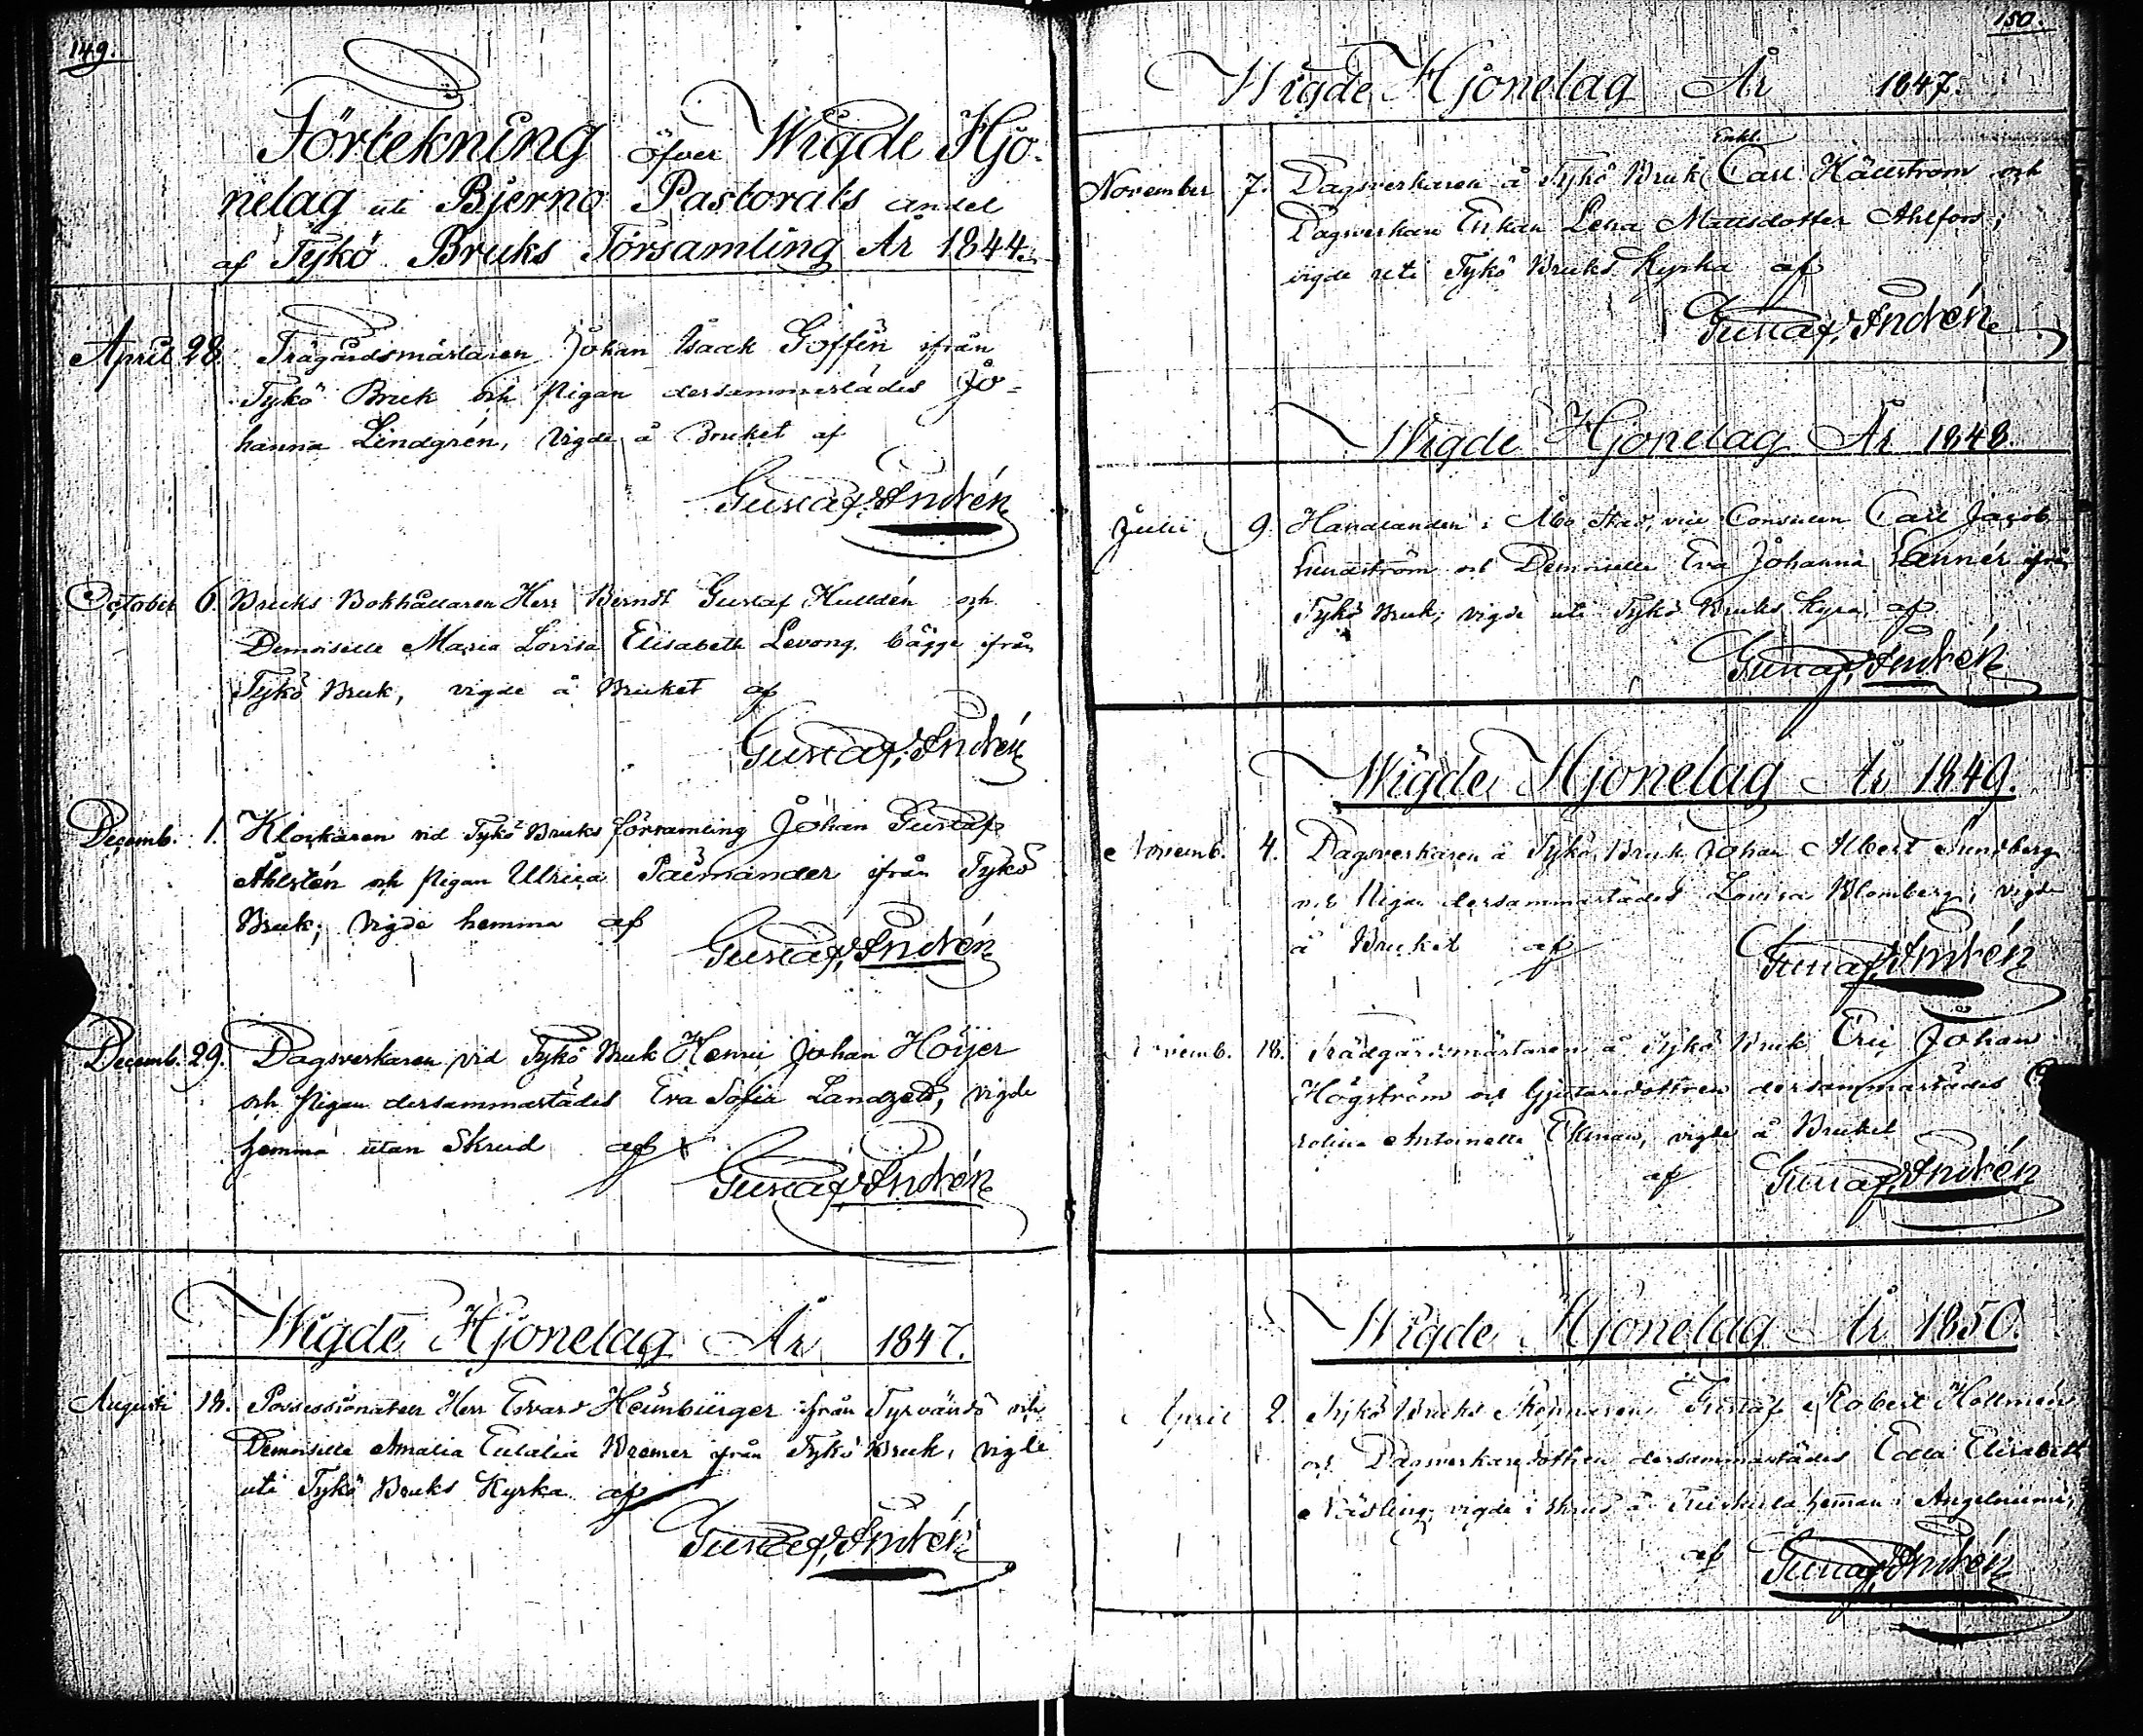 149.
Förtekning öfver Wigde Hjo-
nelag uti Bjerno Pastorats andel
af Tykö Bruks Församling År 1844.
April 28. Trägårdsmästaren Johan Isaak Goffin ifrån
Tykö Bruk och Pigan dersammastädes Jo-
hanna Lindgrén, Vigde å Bruket af
Gustaf Andrén
October 6. Bruks Bokhållaren Herr Berndt Gustaf Hulldén och
Demoiselle Maria Lovisa Elisabeth Levong, bägge ifrån
Tykö Bruk, vigde å Bruket af
Gustaf Andrén
Decemb. 1. Klockaren vid Tykö Bruks församling Johan Gustaf
Åhlstén och Pigan Ulrica Palmander ifrån Tykö
Bruk; Vigde hemma af
Gustaf Andrén
Decemb. 29. Dagsverkaren vid Tykö Bruk Henric Johan Höijer
och Pigan dersammastädes Eva Sofia Landzett, vigde
hemma utan Skrud af
Gustaf Andrén
Wigde Hjonelag År 1847.
Augusti 18. Possessionaten Herr Edvard Heimbürger ifrån Tyrvändö och
Demoiselle Amalia Eulalia Bremer ifrån Tykö Bruk, vigde
uti Tykö Bruks Kyrka af
Gustaf Andrén
150.
Wigde Hjonelag År 1847.
Enkl.
November 7. Dagsverkaren å Tykö Bruk Carl Hällström och
Dagsverkare Enkan Lena Mattsdotter Ahlfors;
vigde uti Tykö Bruks Kyrka af
Gustaf Andrén
Wigde Hjonelag År 1848.
Julii 9. Handlanden i Åbo Stad, vice Consulen Carl Jacob
Lundström och Demoiselle Eva Johanna Lenner ifrån
Tykö Bruk; vigde uti Tykö Bruks Kyra af
Gustaf Andrén
Wigde Hjonelag År 1849.
Novemb. 4. Dagsverkaren å Tykö Bruk Johan Albert Sundberg
och Pigan dersammastädes Lovisa Blomberg; vigde
å Bruket af
Gustaf Andrén
Novemb. 18. Trädgårdsmästaren å Tykö Bruk Eric Johan
Högström och Gjutaredottren dersammastädes
rolina Antoinette Ekman, vigde å Bruket
af Gustaf Andrén
Wigde Hjonelag År 1850.
April 2. Tykö Bruks Gustaf Robert Hollmén
och Dagsverkaredottren dersammastädes Edla Elisabeth
Nästling, vigde i skrud å heman i Angelniemi,
af Gustaf Andrén